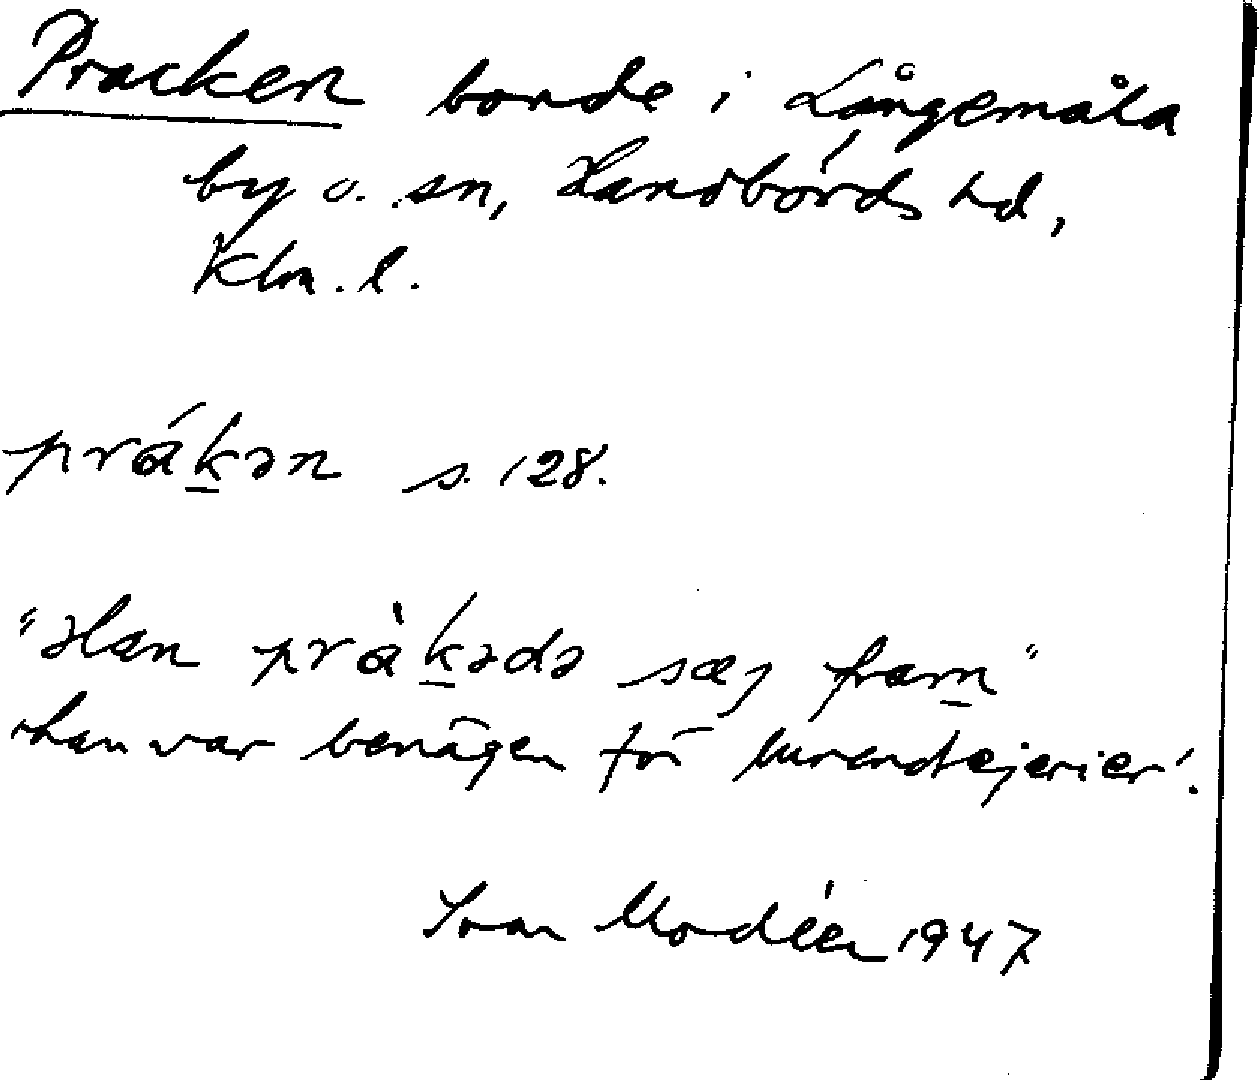 Pracken bonde i Långemåla
by o. sn, Handbörds hd,
Klm. l.
prák̲ən s. 128.
"Han pràk̲ədə sæj fram̲"
'han var benägen för lurendrejerier'.
Ivar Modéer 1947